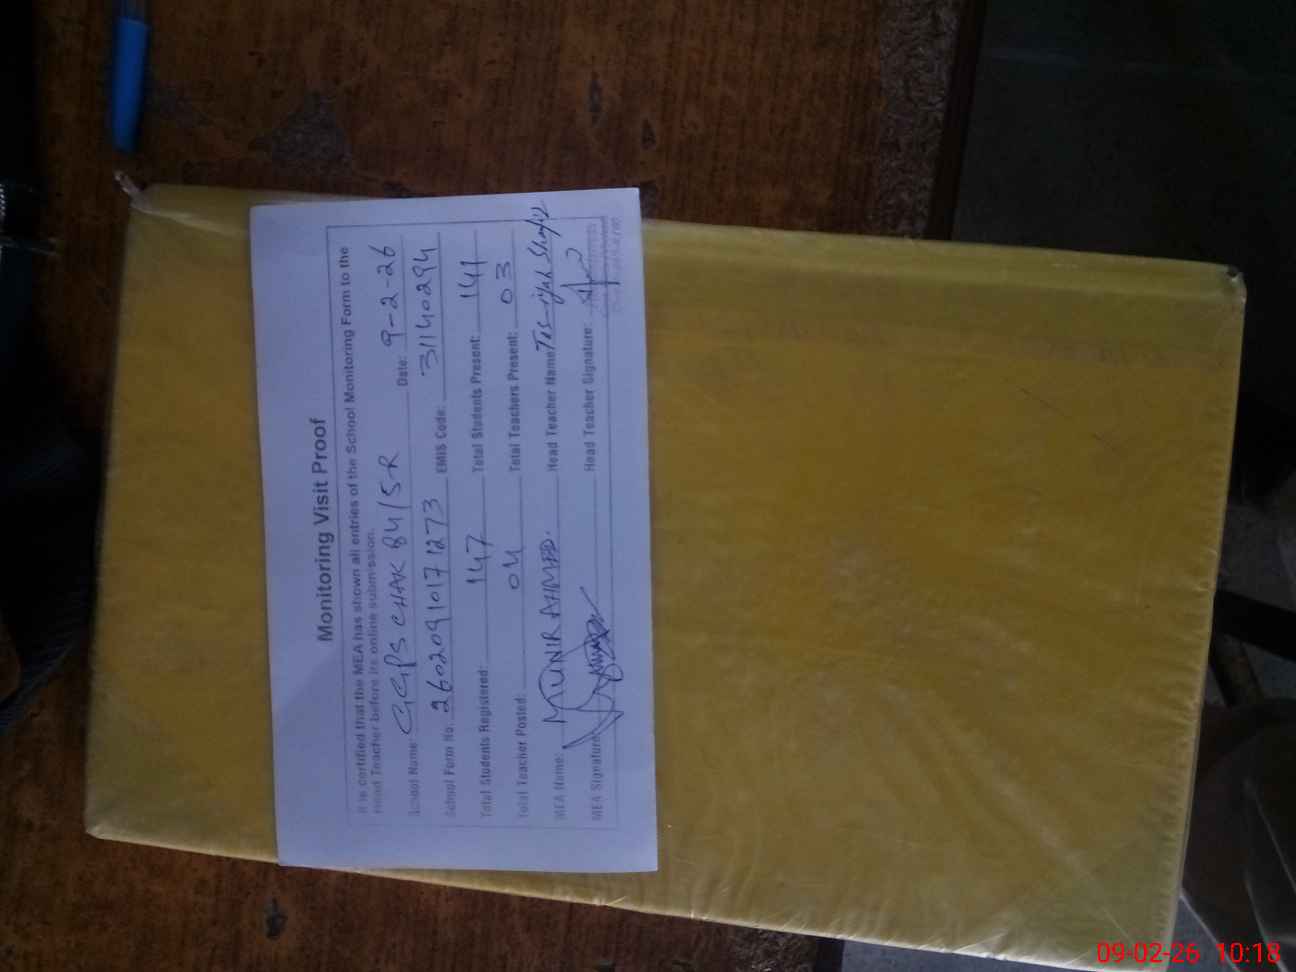 Monitoring Visit Proof
It is certified that the MEA has shown all entries of the School Monitoring Form to the
Head Teacher before its online submission.
School Name: GGPS CHAK 84/5-R Date: 9-2-26
School Form No. 2602091017 1273 EMIS Code: 31140294
Total Students Registered: 147 Total Students Present: 141
Total Teacher Posted: 04 Total Teachers Present: 03
MEA Name: MUNIR AHMED. Head Teacher Name:
MEA Signature: Head Teacher Signature:
09-02-26 10:18